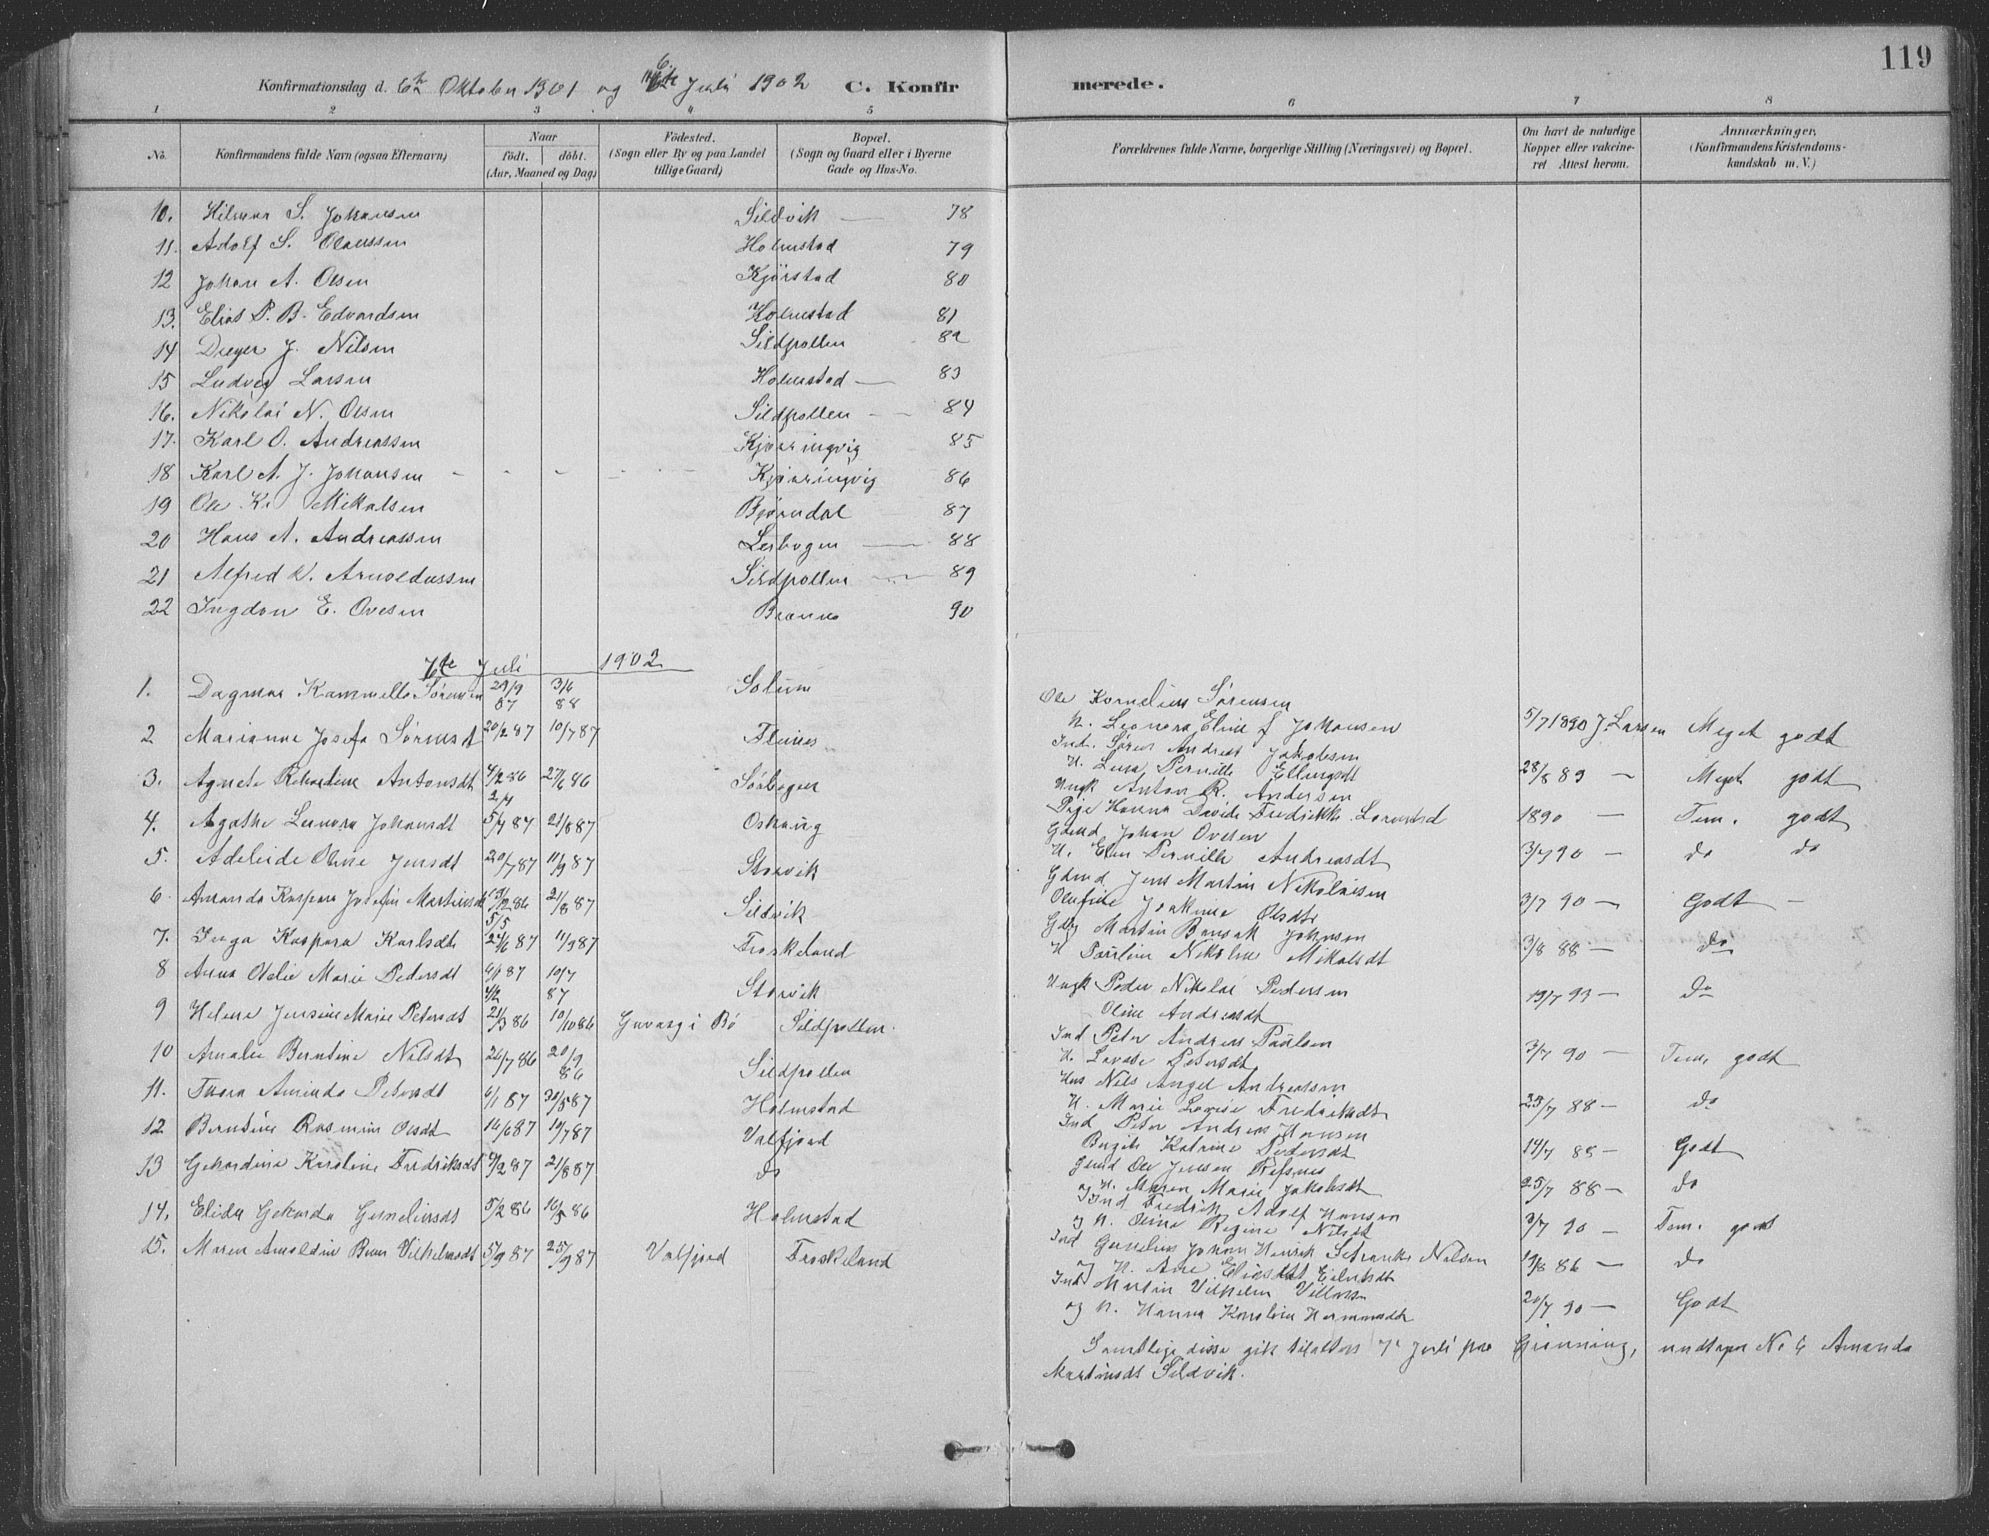 119
Konfirmationsdag d. 6te Oktober 1901 og 6te Juli 1902 C. Konfirmerede.
1 2 3 4 5 6 7 8
No. Konfirmandens fulde Navn (ogsaa Efternavn) Naar födt. döbt. (Aar, Maaned og Dag) Födested. (Sogn eller By og paa Landet tillige Gaard) Bopæl. (Sogn og Gaard eller i Byerne Gade og Hus-No. Forældrenes fulde Navne, borgerlige Stilling (Næringsvei) og Bopæl. Om havt de naturlige Kopper eller vakcineret Attest herom. Anmærkninger. (Konfirmandens Kristendomskundskab m. V.)
10. Hilmar S. Johansen Sildvik — 78
11. Adolf S. Olaussen Holmstad 79
12 Johan A. Olsen Kjörstad 80
13. Elias P. B. Edvardsen Holmstad 81
14 J. Nilsen Sildpollen 82
15 Ludvig Larsen Holmstad — 83
16. Nikolai N. Olsen Sildpollen — 84
17. Karl O. Andreassen Kjæringvig 85
18 Karl A. J. Johansen Kjæringvig 86
19 Ole Kr. Mikalsen Bjørndal 87
20 Hans A. Andreassen Lerbogen — 88
21 Alfred K. Arnoldussen Sildpollen — 89
22 Ingdon E. Ovesen 90
Juli 1902
1. Dagmar Kammilla Sörensen 29/9 87 3/6 88 Solum Ole Kornelius Sörensen
H. Leonora Eline f Johansen 5/7 1890 J. Larsen Meget godt
2 Marianne Josefa Sörensdt 20/2 87 10/7 87 Flines Ind. Sören Andreas Jakobsen
H. Lina Pernille Ellingsdt 28/8 89 — Meget godt
3. Agnete Rikardine Antonsdt 4/2 86 27/6 86 Sörbogen Ungk Anton R. Andersen
Pige Hanna Davida Fredrikke 1890 — Tem. godt
4. Agathe Leonora Johansdt 5/7 87 21/8 87 Oshaug Gdmd Johan Ovesen
H. Elen Pernille Andreasdt 3/7 90 — do do
5. Adeleide Oline Jensdt 20/7 87 11/9 87 Storvik Gdmd Jens Martin Nikolaisen
Olufine Joakime Olsdt 3/7 90 — Godt —
6. Amanda Kaspara Josefin Martinsdt 21/8 87 Sildvik Gdbr Martin Johnsen
H Paulina Nikoline Mikalsdt 3/8 88 — do
7. Inga Kaspara Karlsdt 24/6 87 11/9 87 Froskeland
8 Anna Ovelie Marie Pedersdt 6/1 87 10/7 87 Storvik Ungk Peder Nikolai Pedersen
Oline Andreasdt 19/7 93 — do
9 Helene Jensine Marie Petersdt 21/3 86 10/10 86 i Bö Sildpollen. Ind Peter Andreas Paulsen
H. Lovise Petersdt 3/7 90 — Tem. godt
10 Amalie Berntine Nilsdt 26/7 86 20/9 86 Sildpollen Hus Nils Angel Andreassen
H. Marie Lovise Fredriksdt 25/7 88 — do
11. Thora Aminda Petersdt 6/1 87 30/5 87 Holmstad Ind Peter Andreas Hansen
Birgite Katrine Pedersdt 14/7 88 — Godt
12 Berntine Rasmine Olsdt 16/6 87 10/7 87 Valfjord Gmd Ole Jensen Refsnes
og H. Maren Marie Jakobsdt 25/7 88 — do
13 Gekardina Karoline Fredriksdt 9/2 87 21/8 87 do Ind Fredrik Adolf Hansen
og H. Olina Regine Nilsdt 3/7 90 — Tem. godt
14. Elida Gekarda Gorneliusdt 5/2 86 16/5 86 Holmstad Ind Gornelius Johan Henrik Nilsen
og H. Ane 19/8 86 — do
15. Maren Arnoldine Vilhelmsdt 5/9 87 25/9 87 Valfjord Froskeland Ind Martin Vilhelm
og H. Hanna Karoline 20/7 90 — Godt
Samtlige disse gik tilalters 7de Juli paa Grönning, undtagen No 6 Amanda
Martinsdt Sildvik.